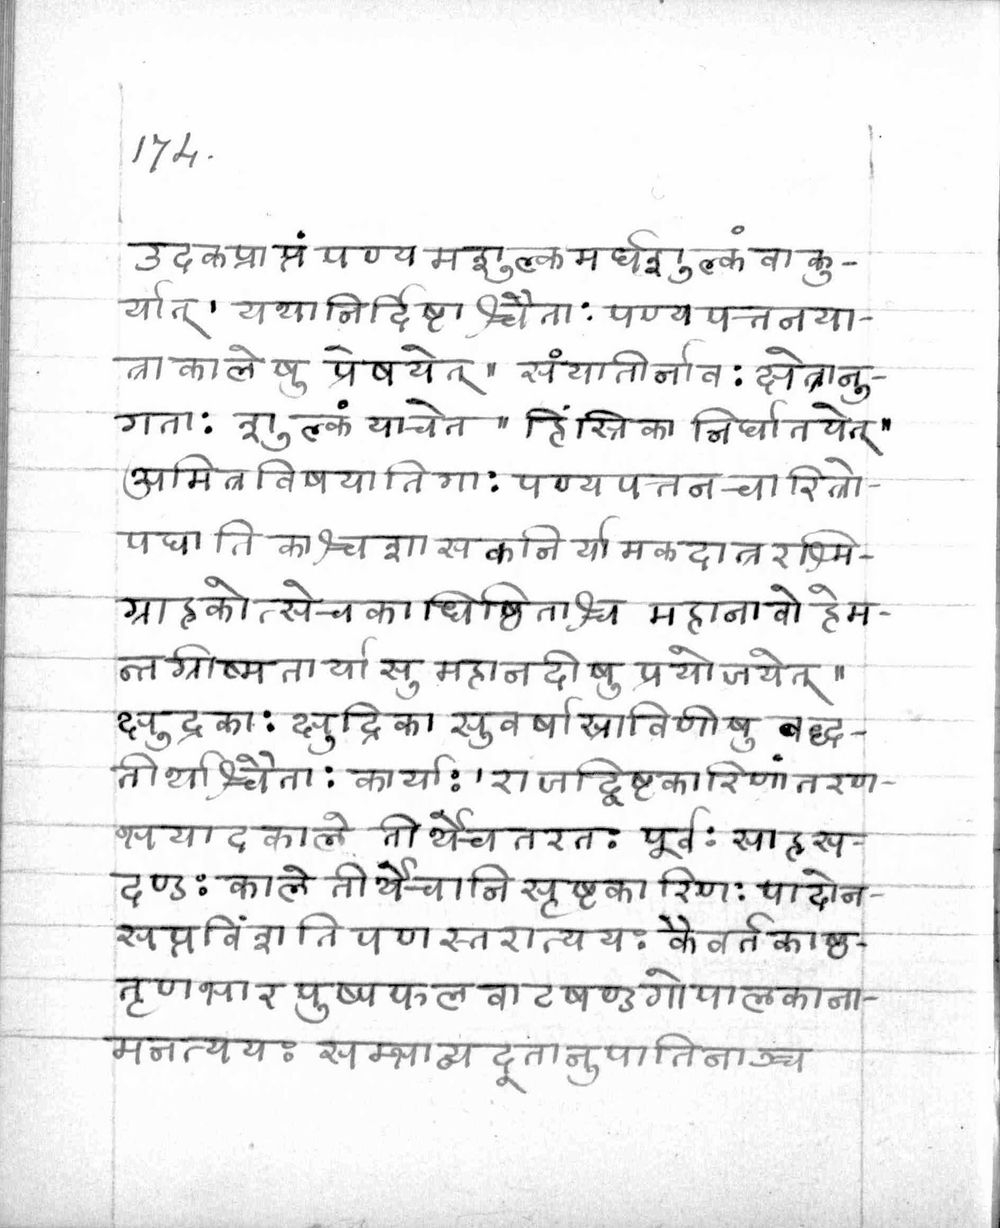 174.
उदकप्राप्तं पण्यमशुल्कमर्धशुल्कं वा कु-
र्यात्। यथानिर्दिष्टाश्चैताः पण्यपत्तनया-
त्राकालेषु प्रेषयेत्॥ संयातीर्नावः क्षेत्रानु-
गताः शुल्कं याचेत॥ हिंस्रिका निर्घातयेत्॥
अमित्रविषयातिगाः पण्यपत्तनचारित्रो-
पघातिकाश्च शासकनिर्यामकदात्ररश्मि-
ग्राहकोत्सेचकाधिष्ठिताश्च महानावो हेम-
न्तग्रीष्मतार्यासु महानदीषु प्रयोजयेत्॥
क्षुद्रकाः क्षुद्रिकासु वर्षास्राविणीषु बद्ध-
तीर्थाश्चैताः कार्याः। राजद्विष्टकारिणां तरण-
भयादकाले तीर्थेच तरतः पूर्वः साहस-
दण्डः काले तीर्थेचानिसृष्टकारिणः पादोन-
सप्तविंशतिपणस्तरात्ययः कैवर्तकाष्ठ-
तृणभारपुष्पफलवाटषण्डगोपालकाना-
मनत्ययः सम्भाव्यदूतानुपातिनाञ्च